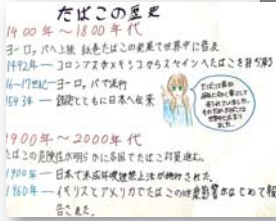 たばこの歴史
1400年～1800年代
ヨーロッパへ上陸 紙巻たばこの発展で世界中に普及
1492年―コロンブスがメキシコからスペインへたばこを持ち帰る
16～17世紀―ヨーロッパで流行
1593年―鉄砲とともに日本へ伝来
たばこは昔は
世界中に広まり
ました。
1900年～2000年代
たばこの危険性が明らかに各国でたばこ対策進む。
1900年―日本で未成年喫煙禁止法が施行された。
1960年―イギリスとアメリカでたばこの健康影響がはじめて報
告された。